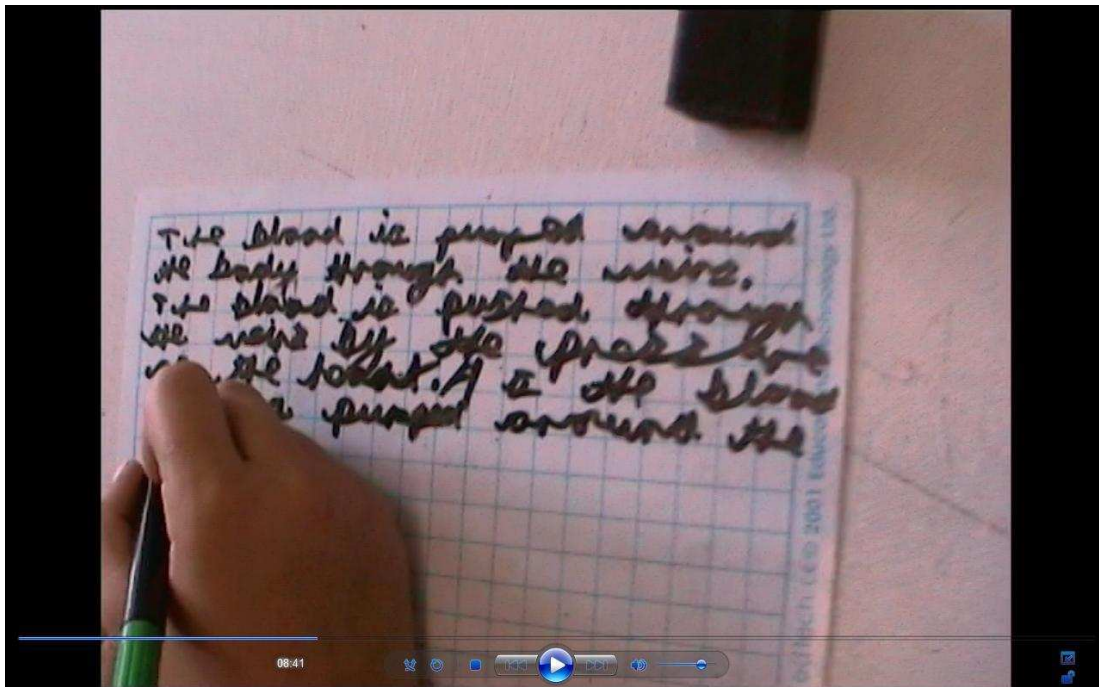 The blood is pumped around
the body through the veins.
The blood is pushed through
the veins by the pressure
the heart. A the blood
pumped around the
© 2001 Educational Technology Ltd.
08:41